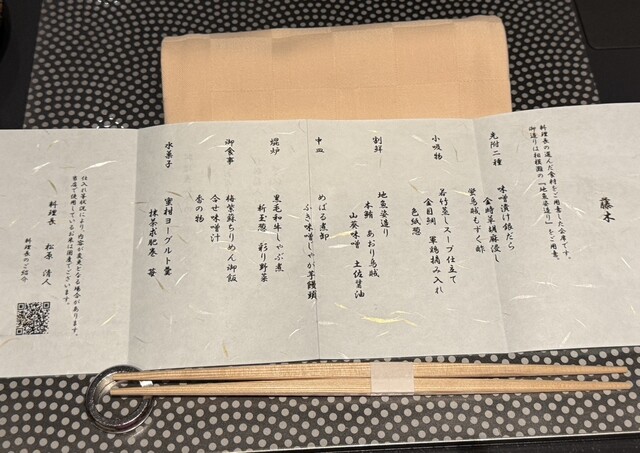 藤木
料理長の選んだ食材をご用意した会席です。
御造りは相模湾の『地魚姿造り』をご用意。
先附二種
味噌漬け銀だら
金時草胡麻浸し
蛍烏賊もずく酢
小吸物
若竹蒸しスープ仕立て
金目鯛 軍鶏摘み入れ
色紙葱
割鮮
地魚姿造り
本鮪 あおり烏賊
山葵味噌 土佐醤油
中皿
めばる煮卸
ふき味噌じゃが芋饅頭
焜炉
黒毛和牛しゃぶ煮
新玉葱 彩り野菜
御食事
梅紫蘇ちりめん御飯
合せ味噌汁
香の物
水菓子
蜜柑ヨーグルト羹
抹茶求肥巻 苺
仕入れ等状況により、内容が変更となる場合があります。
当店で使用しているお米は国産でございます。
料理長 松原 清人
料理長のご紹介